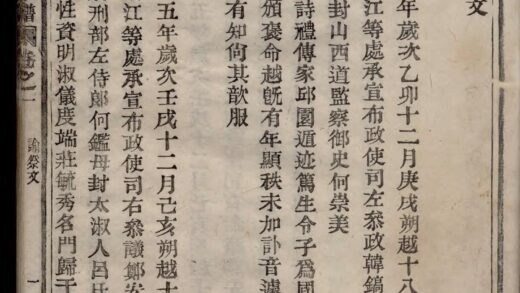 文
年歲次乙卯十二月庚戌朔越十八
江等處承宣布政使司左叅政韓鎬
封山西道監察御史何崇美
詩禮傳家邱園遁迹篤生令子爲國
頒褒命越旣有年顯秩未加訃音遽
有知尚其歆服
五年歲次壬戌十二月己亥朔越十
江等處承宣布政使司右叅議鄭
故刑部左侍郎何鑑母封太淑人呂氏
性資明淑儀度端莊毓秀名門歸于
譜 卷之 諭祭文 一